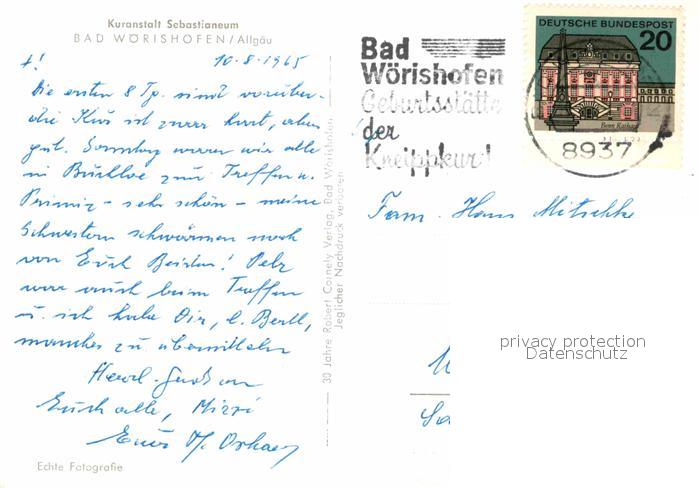 Kuranstalt Sebastianeum
BAD WÖRISHOFEN/Allgäu
10.8.1965
Die ersten 8 Tg. sind vorüber-
die Kur ist zwar hart, aber
gut. Sonntag waren wir alle
in Buchloe zur Treffen u.
Primiz - sehr schön - meine
Schwestern schwärmen noch
von Euch Beiden! Pelz
war auch beim Treffen
u. ich habe Dir, l. Bertl,
manches zu übermitteln
Herzl.
Euch alle, Mizzi
Euer
Echte Fotografie
30 Jahre Robert Cornely Verlag, Bad Wörishofen
Jeglicher Nachdruck verboten
Bad
Wörishofen
Geburtsstätte
der
Kneippkur!
DEUTSCHE BUNDESPOST
20
Bonn Rathaus
8937
Fam. Hans Mitschke
privacy protection
Datenschutz